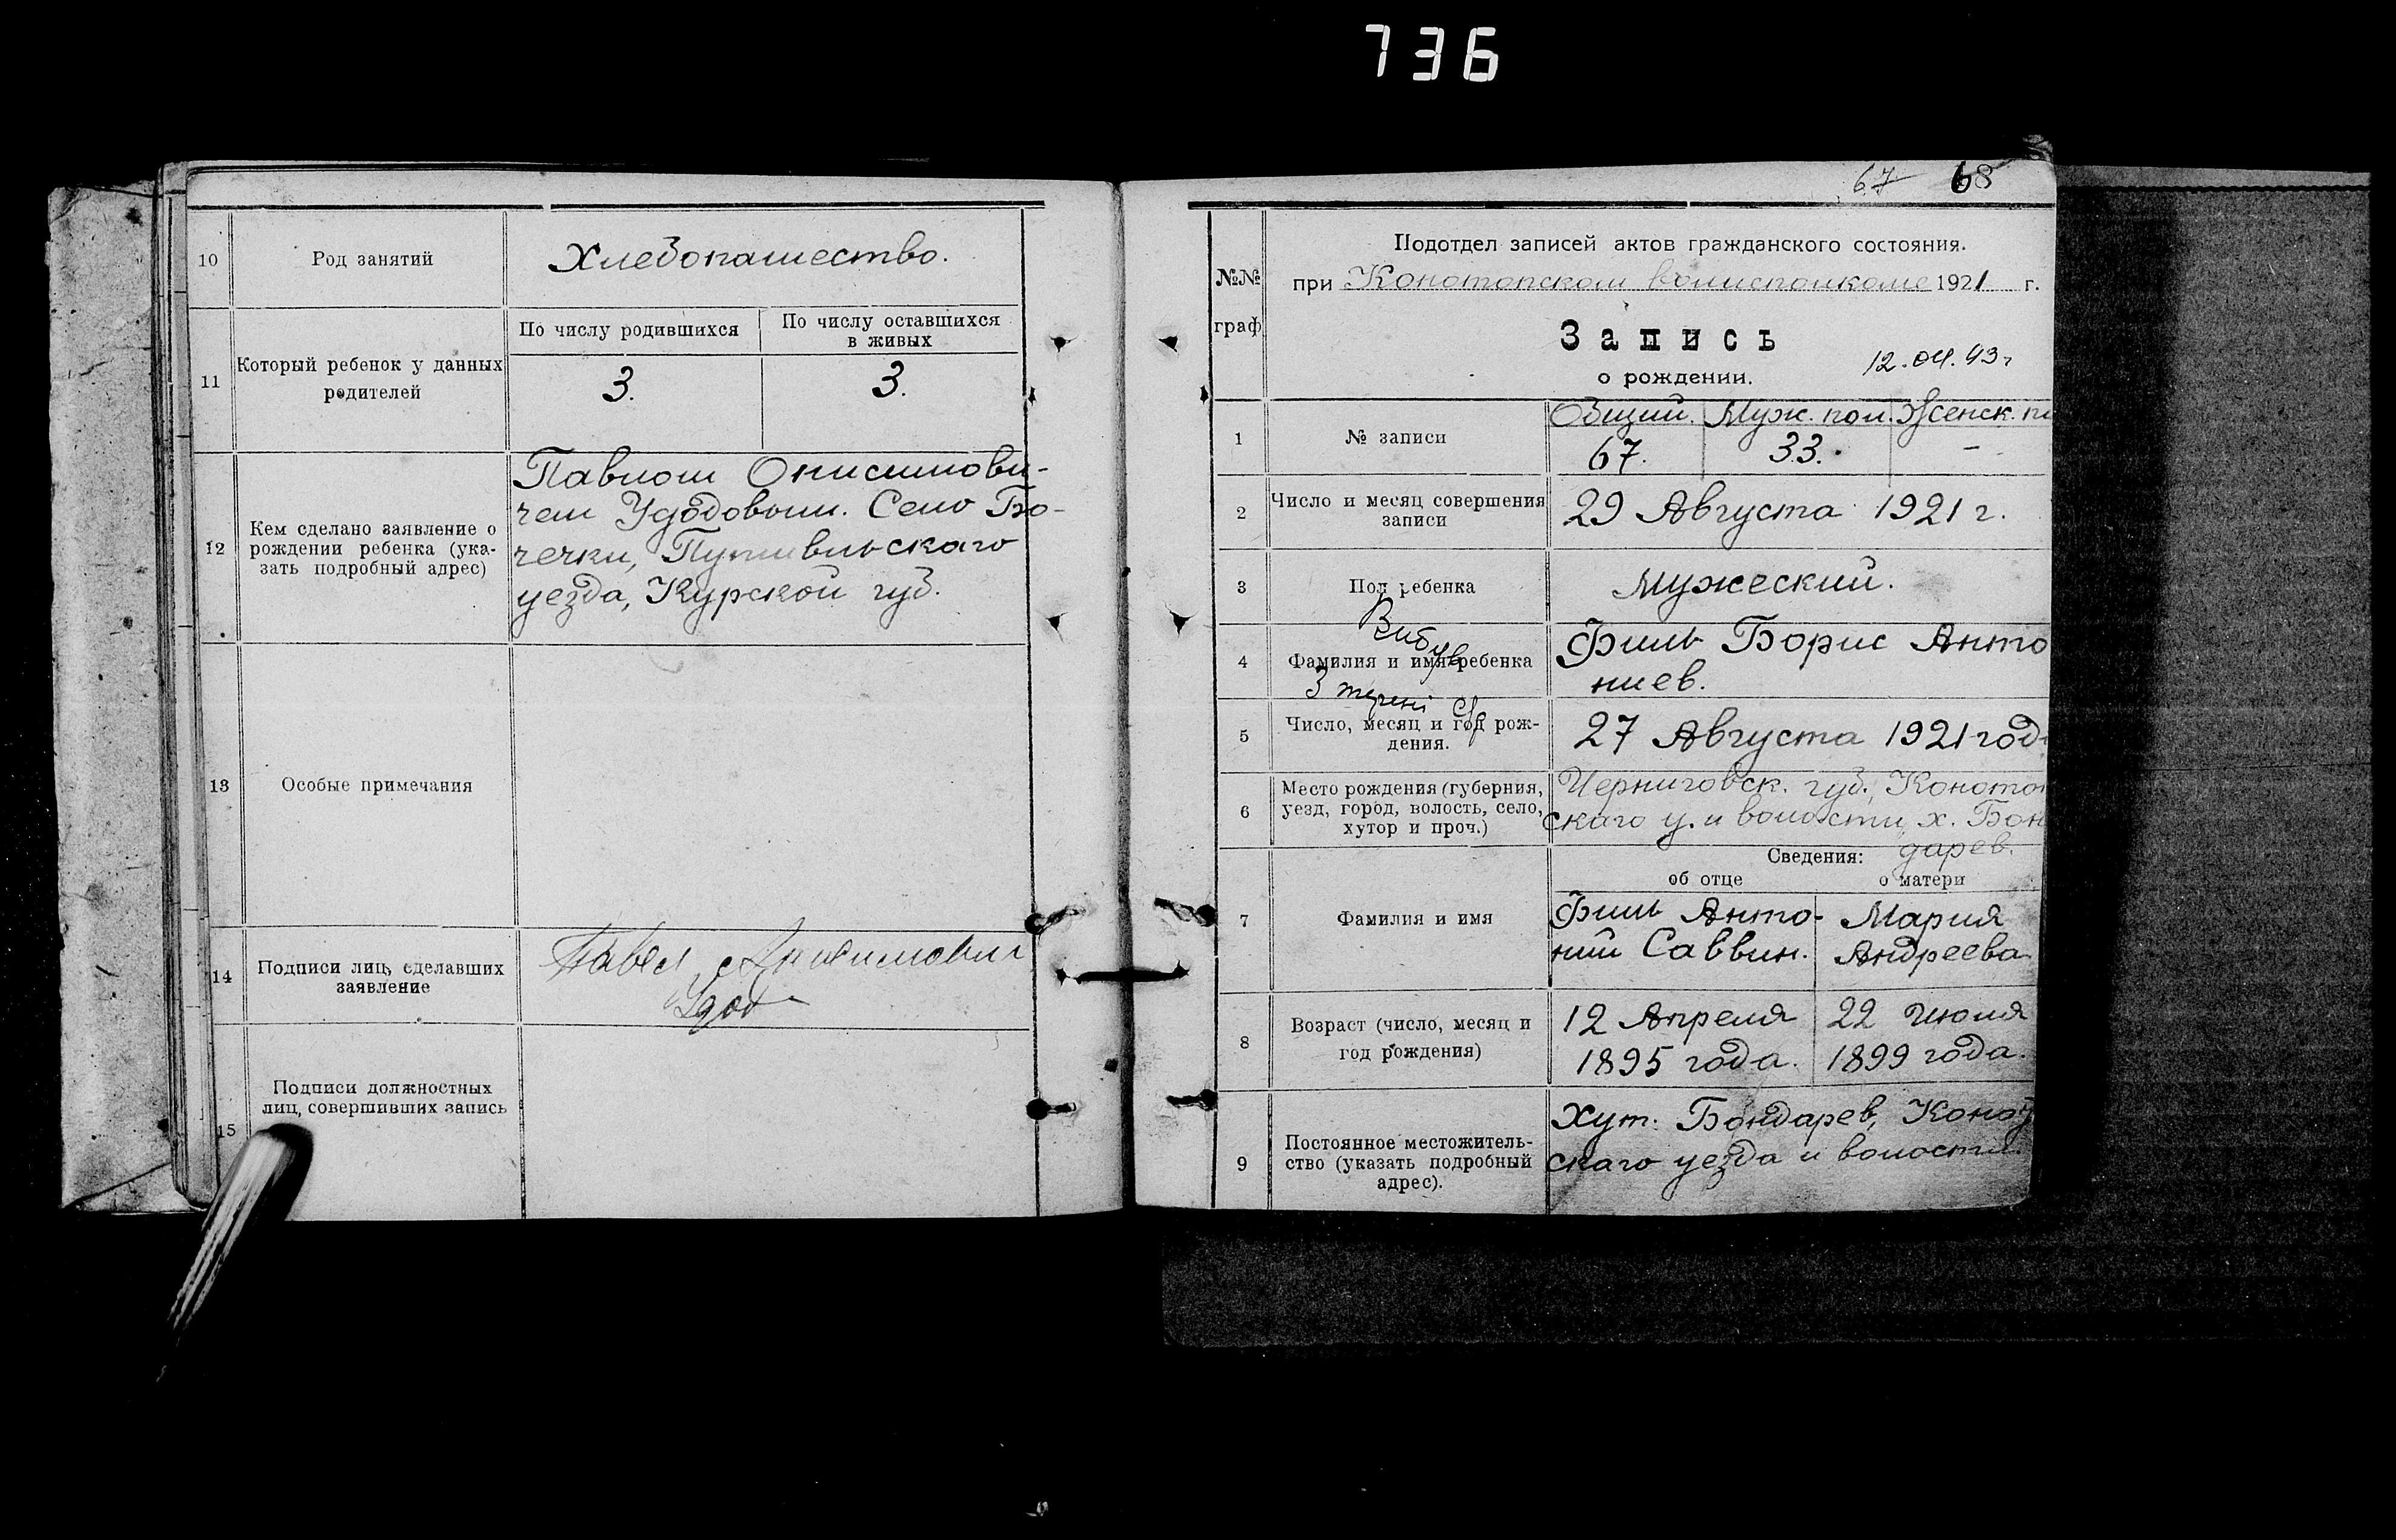 736
10
Род занятий
Хлебопашество.
11
Который ребенок у данных
родителей
По числу родившихся
По числу оставшихся
в живых
3.
3.
12
Кем сделано заявление о
рождении ребенка (ука-
зать подробный адрес)
Павлом Онисимови-
чем Удодовым. Село Бо-
чечки, Путивльскаго
уезда, Курской губ.
13
Особые примечания
14
Подписи лиц, сделавших
заявление
Павел
Удод
15
Подписи должностных
лиц, совершивших запись
67 68
№№
граф
Подотдел записей актов гражданского состояния.
при Конотопском волисполкоме 1921 г.
Запись
о рождении.
12.04.93г
1
№ записи
Общий. Муж. пол. Женск. по
67. 33. -
2
Число и месяц совершения
записи
29 Августа 1921 г.
3
Пол ребенка
Мужеский.
Вибув
4
Фамилия и имя ребенка
Филь Борис Анто
ниев.
З
5
Число, месяц и год рож-
дения.
27 Августа 1921 год
6
Место рождения (губерния,
уезд, город, волость, село,
хутор и проч.)
Черниговск. губ., Конотоп
скаго у. и волости, х. Бон
дарев.
Сведения:
об отце
о матери
7
Фамилия и имя
Филь Анто-
ний Саввин.
Мария
Андреева
8
Возраст (число, месяц и
год рождения)
12 Апреля
1895 года.
22 Июля
1899 года.
9
Постоянное местожитель-
ство (указать подробный
адрес).
Хут. Бондарев, Коно
скаго уезда и волости.